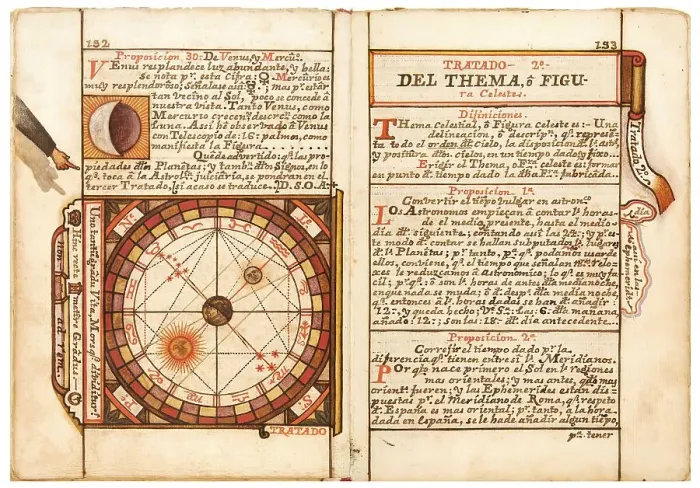 132
Proposicion 30: De Venus, y Mercu.
VEnus resplandece luz abundante, y bella:
se nota pr. esta Cifra: ♀. Mercurio es
muy resplendoroso; Señalase asi: ☿.; mas pr. estàr
tan vecino al Sol, poco se concede à
nuestra vista. Tanto Venus, como
Mercurio crecen, y descrecen como la
Luna. Asi hè observado à Venus
con Telescopio de: 16: palmos, como
manifiesta la Figura.
Quede advertido: q. las pro-
piedades dlos Planetas; y tambn. dlos Signos, en lo
q. toca à la Astrolia. judiciària, se pondràn en el
tercer Tratado, si acaso se traduce. D. S. O. A.
Una tantum
Vita, Mors
Hinc recte
metire Gradus
non ad
TRATADO
133
TRATADO 2º.
DEL THEMA, ô FIGU-
ra Celeste.
Difiniciones.
THema Celestial, ô Figura celeste es: Una
delineacion, ô descripn., q. represẽ-
ta todo el orden dl. Cielo, la disposicion dls.
y positura dlos cielos, en un tiempo dado y fixo...
Erigir el Thema, ô Fa. celeste es: formar
en punto dl. tiempo dado la dha. Fa. fabricada.
Proposicion 1ª.
Convertir el tiẽpo vulgar en astronº.
LOs Astronomos empieçan à contàr ls. horas
de el medio presente, hasta el medio-
dia dl. siguiente; contando asi las 24:; y pr. es-
te modo dl. contar se hallan subputados ls. lugares
dl. ls. Planetas; pr. tanto, pa. q. podamos usàr de
ellos, conviene, q. el tiempo que señalan
xes le reduzcamos à Astronomico; lo q. es muy fa-
cil; pr. q.; ò son ls. horas de antes dla medianoche,
en que nada se muda; ò dl. desps. dla media noche,
q. entonces à ls. horas dadas se han dl. añadir
12:, y queda hecho; Vs. Ss.: Las: 6: dla mañana,
añado: 12:; son las: 18: dl. dia antecedente...
Proposicion. 2ª.
Corregir el tiempo dado pr. la
diferencia q. tienen entre si ls. Meridianos.
POr qto. nace primero el Sol en ls. regiones
mas orientales; y mas antes, qdo. mas
orientl. fueren; y las Ephemerides estan dis-
puestas pr. el Meridiano de Roma, q. respeto
dl. España es mas oriental; pr. tanto, à la hora
dada en España, se le ha de añadir algun tiẽpo,
pa. tener
Tratado 2º. S.